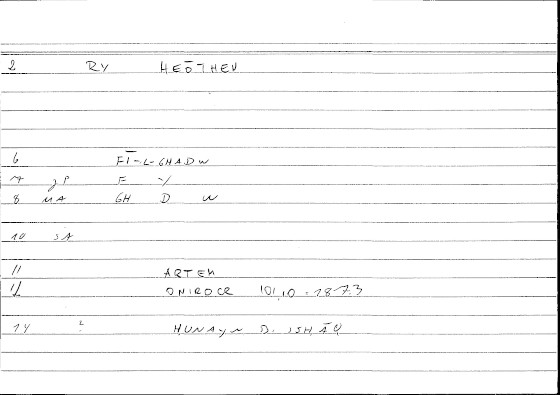 2 RY HEŌTHEN
6 FĪ-L-GHADW
7 JP F Y
8 MA GH D W
10 SA
11 ARTEM
12 ONIROCR 101,10 = 187.3
14 ? HUNAYN B. ISḤĀQ